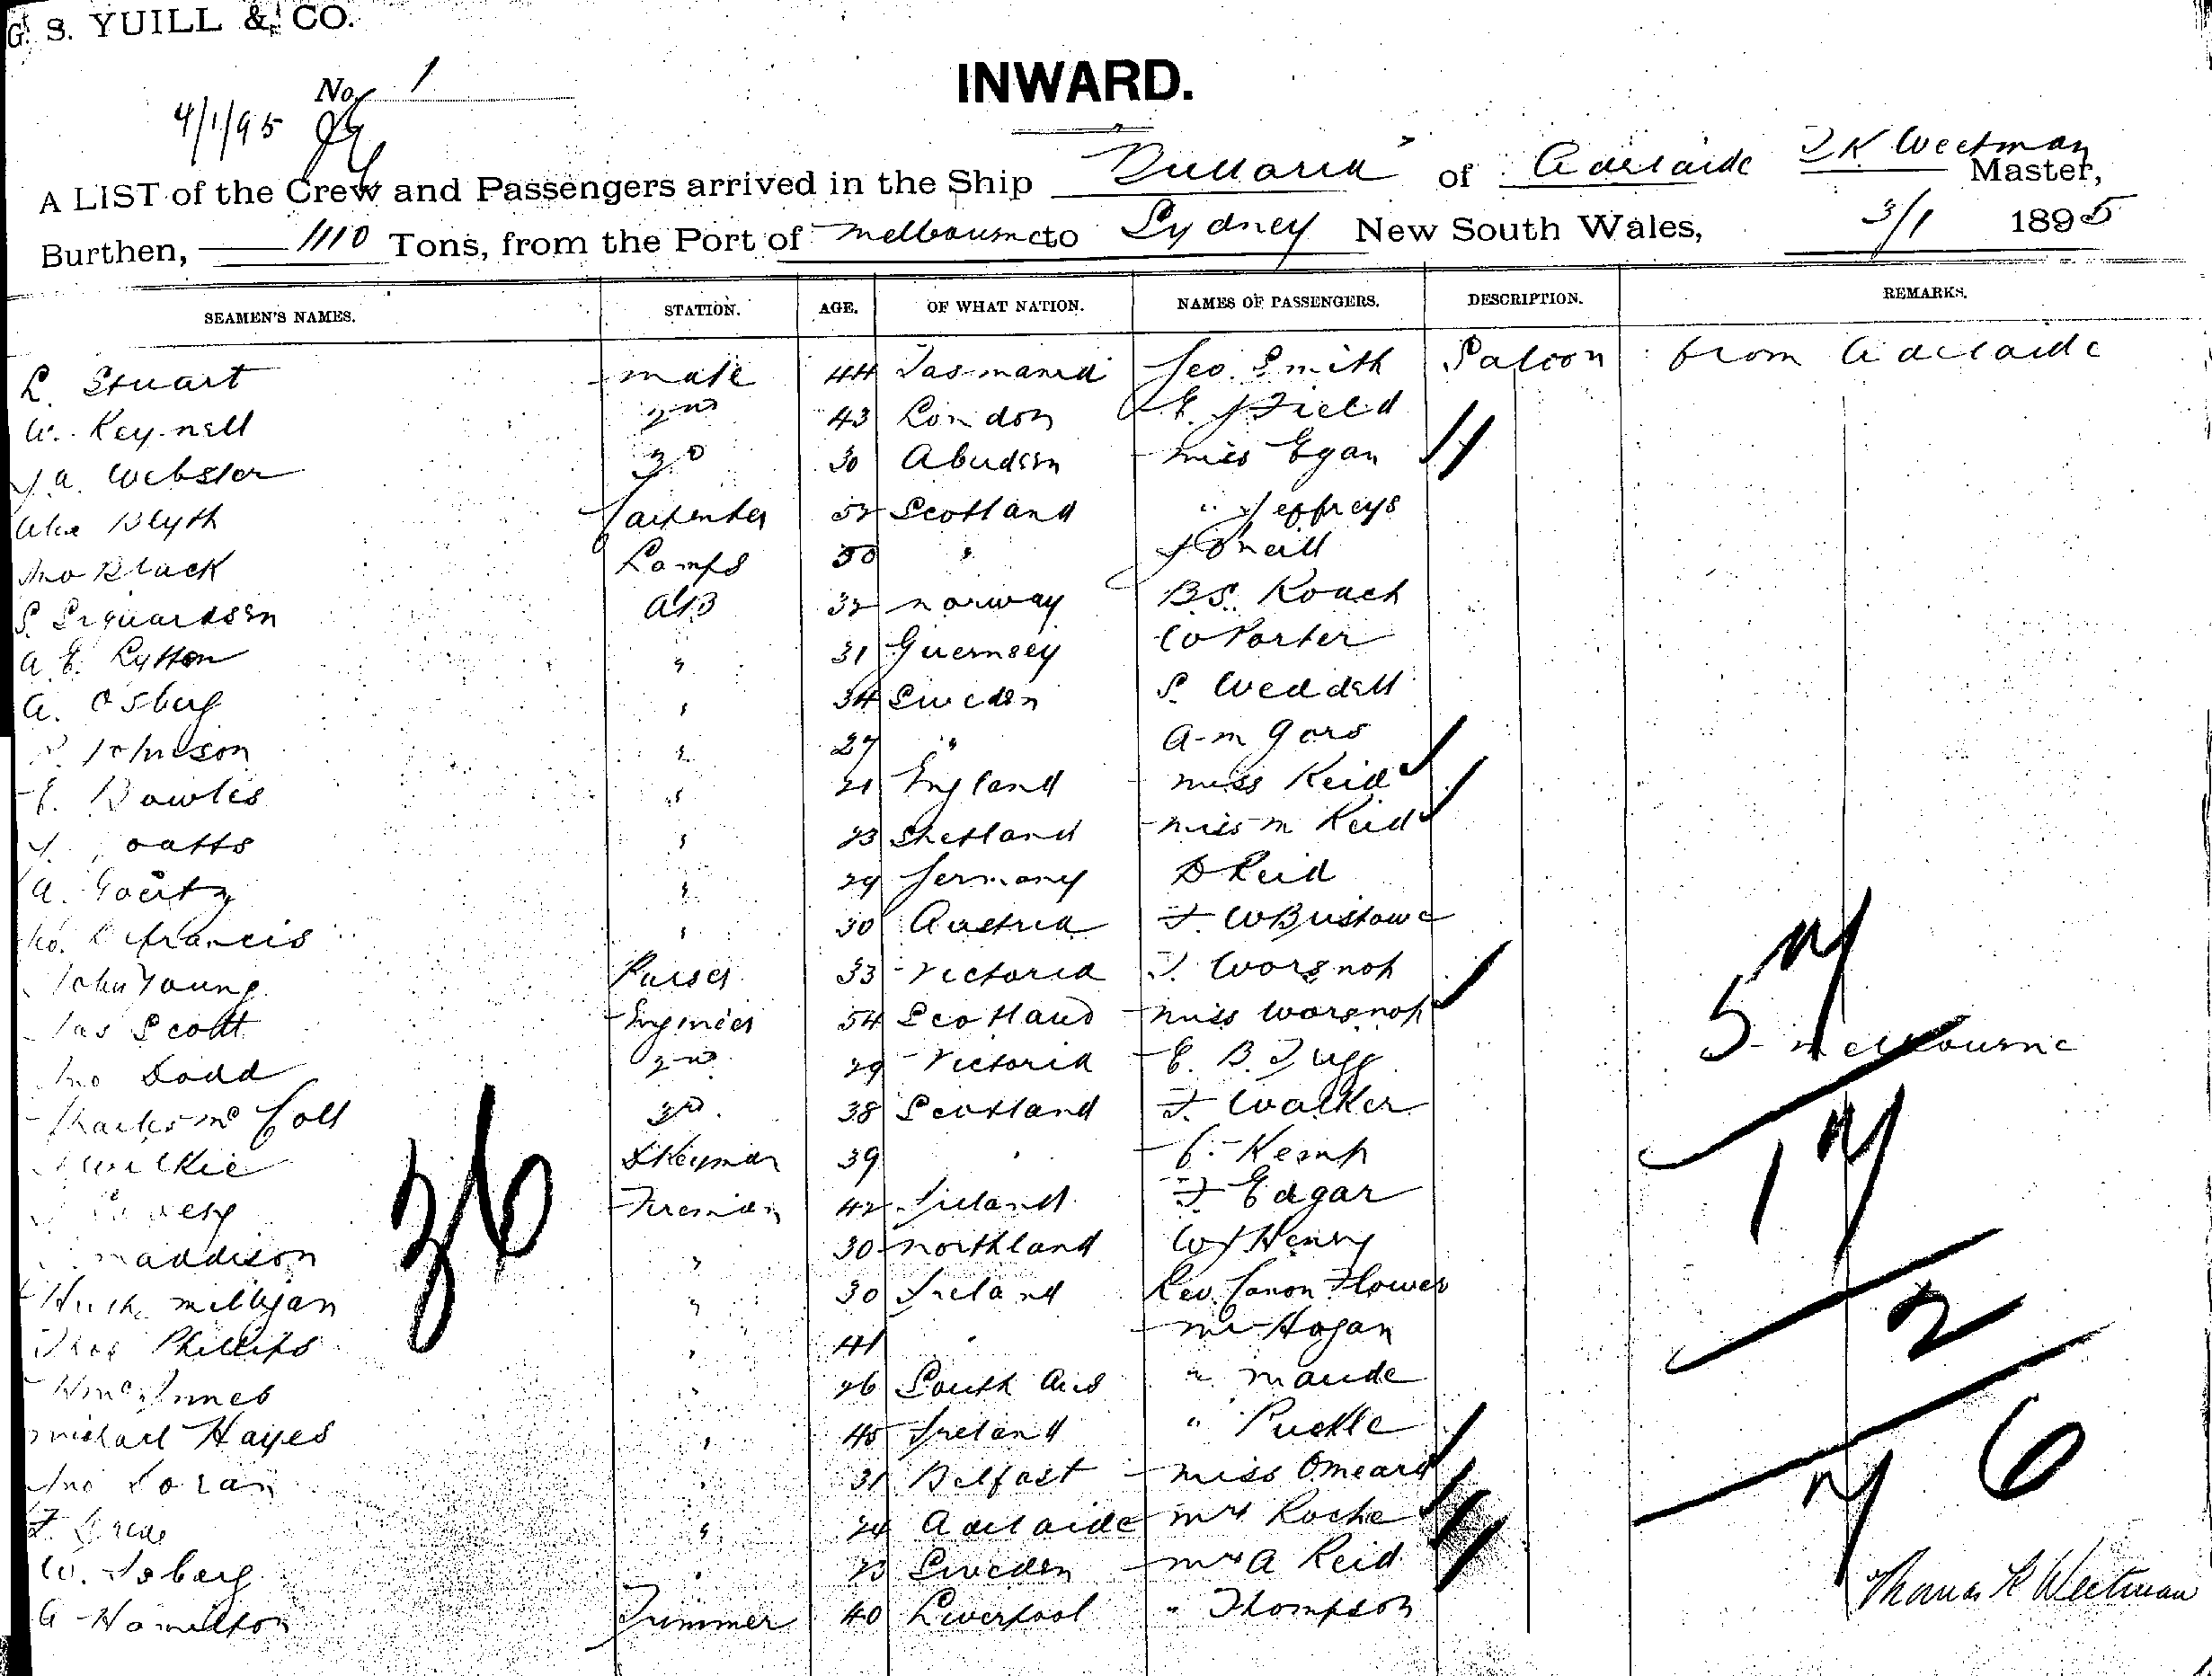 G. S. YUILL & CO.
No. 1
4/1/95
INWARD.
A LIST of the Crew and Passengers arrived in the Ship "Bullarra" of Adelaide T K Weetman Master,
Burthen, 1110 Tons, from the Port of Melbourne to Sydney New South Wales, 3/1 1895
SEAMEN'S NAMES. STATION. AGE. OF WHAT NATION. NAMES OF PASSENGERS. DESCRIPTION. REMARKS.
L. Stuart mate 44 Tasmania Geo. Smith Saloon from Adelaide
W. Reynell 2nd 43 London E. J Field
J. A. Webster 3d 30 Aberdeen Miss Egan
Alex Blyth Carpenter 52 Scotland " Jeffreys
Jno Black Lamps 50 " J ONeill
S. AB 32 Norway B.S. Roach
A. E. Lytton " 31 Guernsey W Porter
A. Osberg " 34 Sweden S. Weddell
Johnson " 27 " A. M Gors
Bowles " 21 England Miss Reid
J. oatts " 23 Shetland Miss M Reid
A. Goertz " 29 Germany D Reid
Francis " 30 Austria F. W Bristowe
John Young Purser 33 Victoria T. Worsnop
Jas Scott Engineer 54 Scotland Miss Worsnop
Jno Dodd 2nd 29 Victoria E. B. Tugg 5 M Melbourne
Charles McColl 3rd 38 Scotland F Walker
Wilkie Dkeyman 39 " C. Kemp 1 M
Fireman 42 Ireland F. Edgar
Maddison " 30 Northland W J Henry
Hugh Milligan " 30 Ireland Rev. Canon Flower
Thos Phillips " 41 " Mr Hogan 2
McInnes " 26 South Aus " Maude
Michael Hayes " 45 Ireland " Puckle
Jno Doran " 31 Belfast Miss Omeara 6
F. " 24 Adelaide Mrs Roche
W. Isberg " 23 Sweden Mrs A Reid
A Hamilton Trimmer 40 Liverpool " Thompson
36
Thomas K Weetman